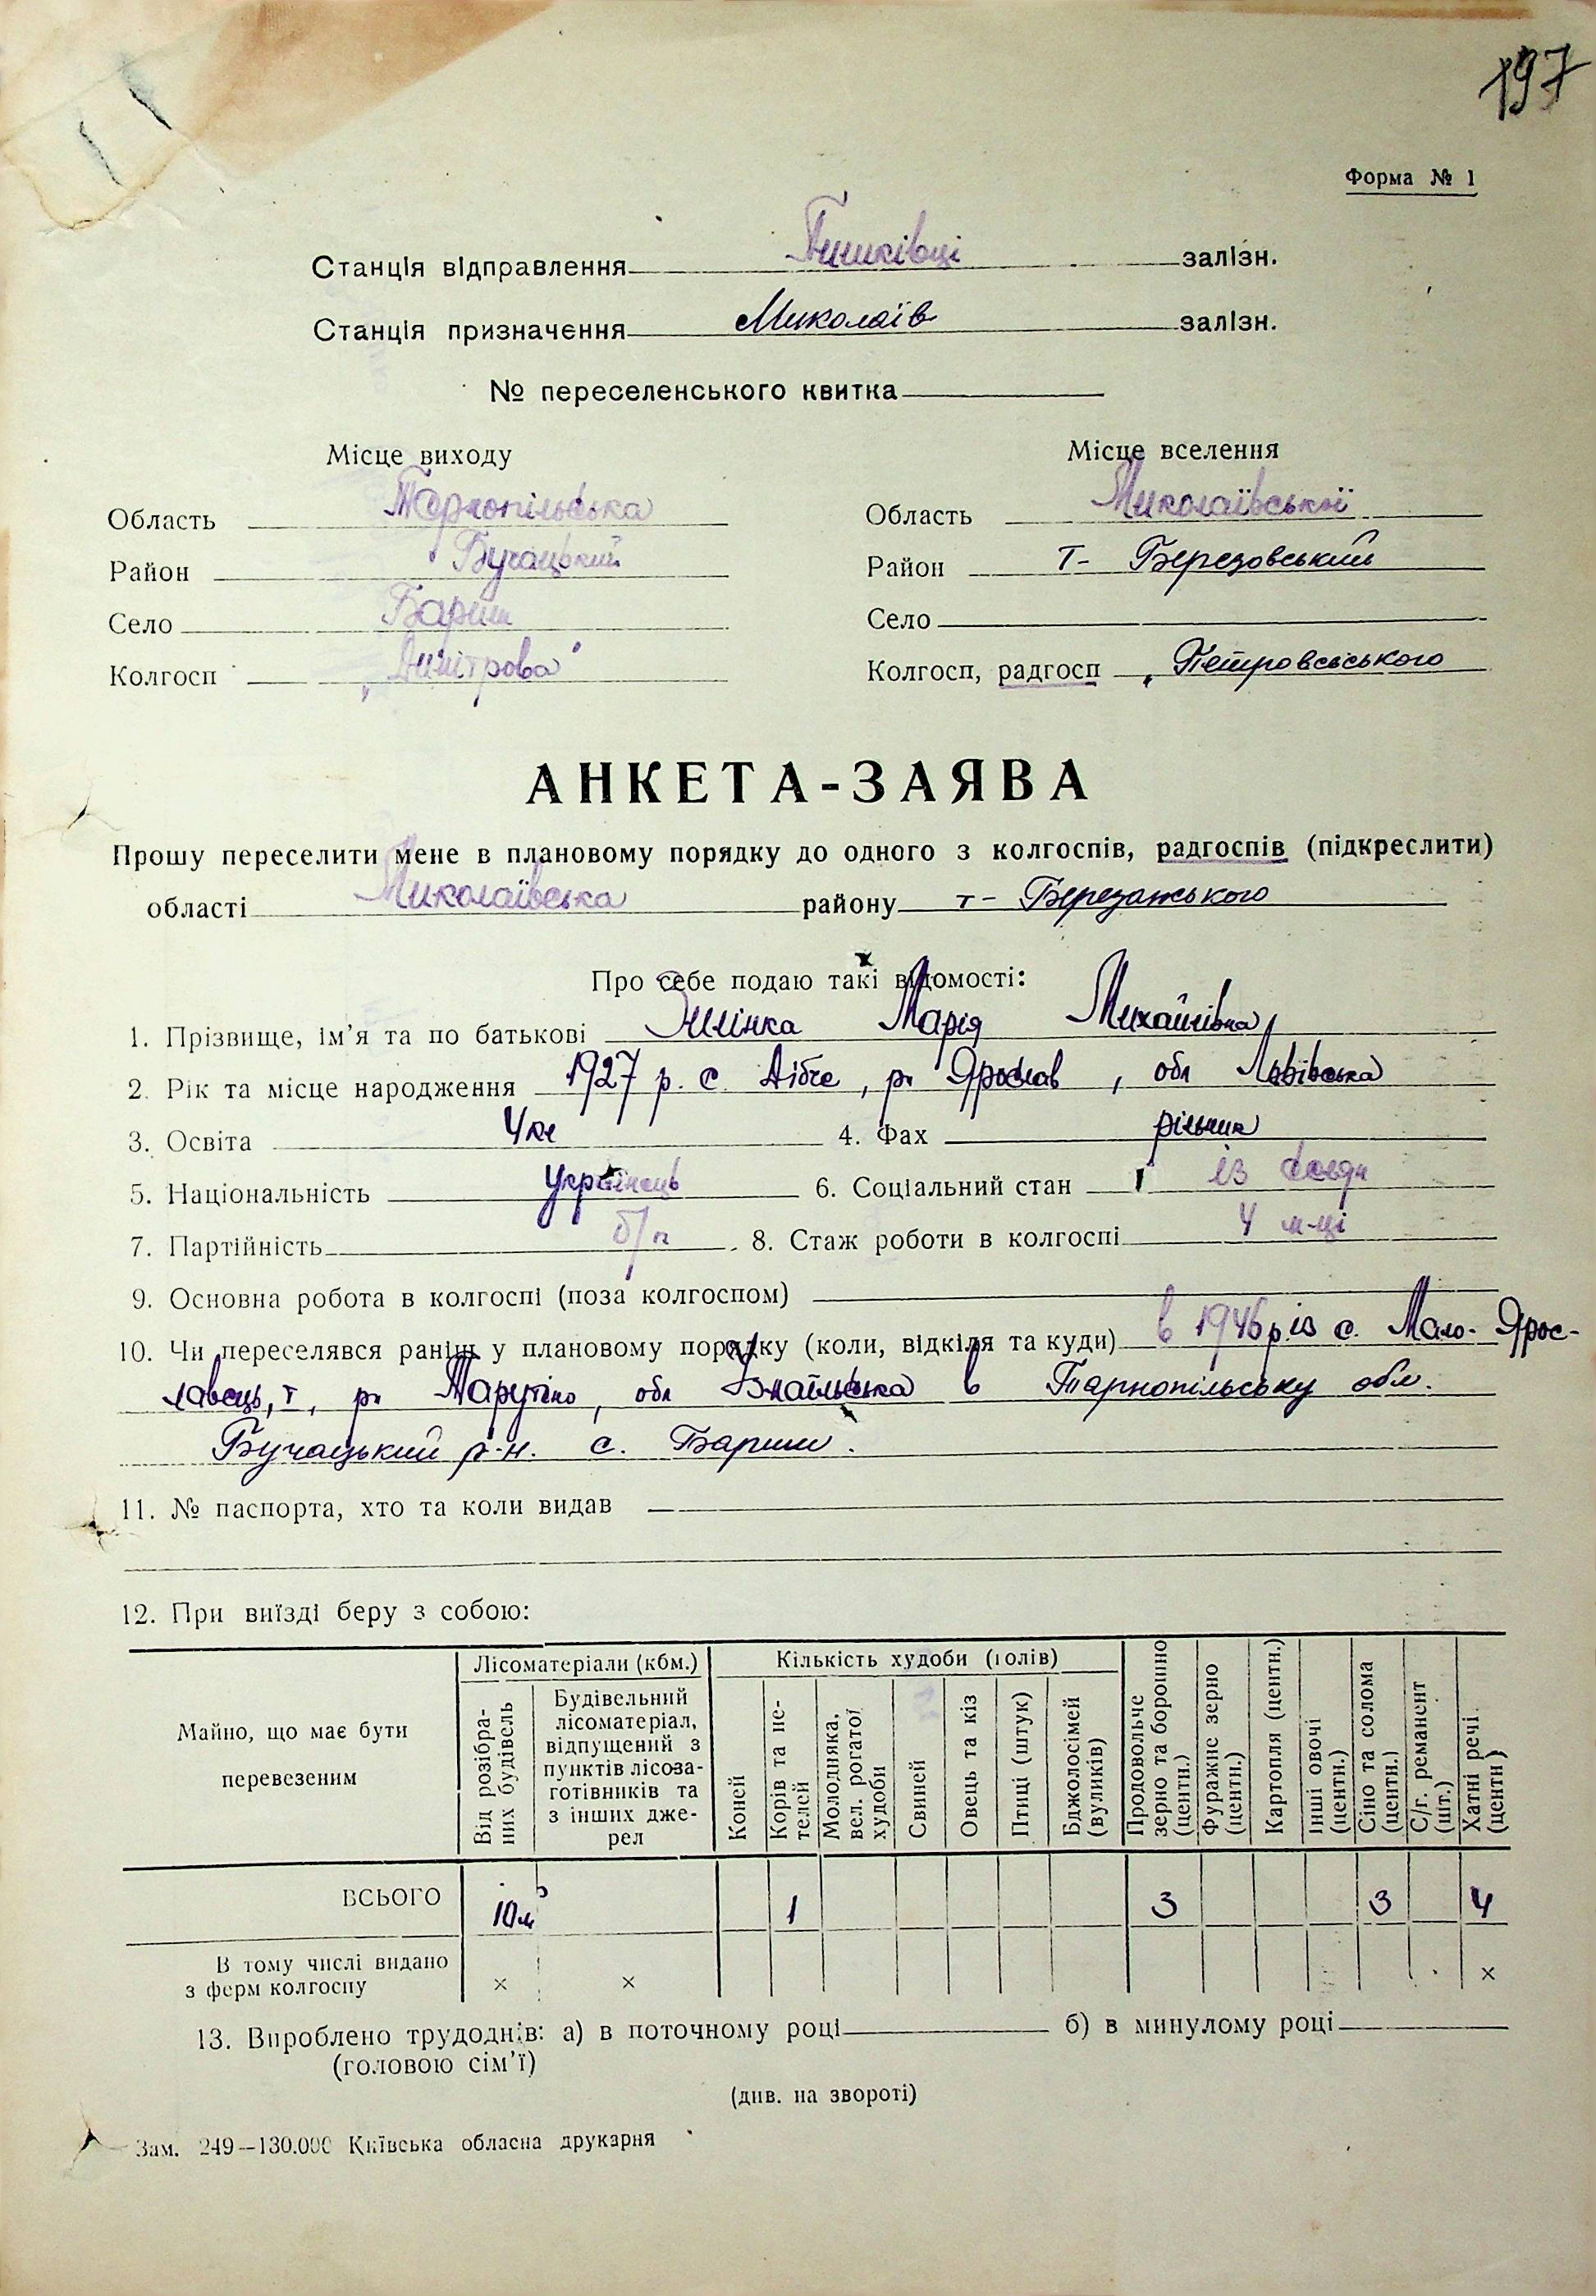 197
Форма № 1
Станція відправлення Пишківці залізн.
Станція призначення Миколаїв залізн.
№ переселенського квитка
Місце виходу Місце вселення
Область Тернопільська Область Миколаївської
Район Бучацький Район Т- Березовський
Село Бариш Село
Колгосп „Димітрова" Колгосп, радгосп „Петровського
АНКЕТА-ЗАЯВА
Прошу переселити мене в плановому порядку до одного з колгоспів, радгоспів (підкреслити)
області Миколаївська району т- Березанського
Про себе подаю такі відомості:
1. Прізвище, ім'я та по батькові Марія Михайлівна
2. Рік та місце народження 1927 р. с. Дібче, рн Ярослав, обл Львівська
3. Освіта 4 кл 4. Фах рільник
5. Національність українець 6. Соціальний стан із селян
7. Партійність б/п 8. Стаж роботи в колгоспі 4 м-ці
9. Основна робота в колгоспі (поза колгоспом)
10. Чи переселявся раніш у плановому порядку (коли, відкіля та куди) в 1946 р. із с. Мало-Ярос-
лавець, І, рн Тарутіно, обл Ізмаїльська в Тарнопільську обл.
Бучацький р-н. с. Бариш.
11. № паспорта, хто та коли видав
12. При виїзді беру з собою:
Майно, що має бути перевезеним
Лісоматеріали (кбм.)
Від розібраних будівель
Будівельний лісоматеріал, відпущений з пунктів лісозаготівників та з інших джерел
Кількість худоби (голів)
Коней
Корів та нетелей
Молодняка, вел. рогатої худоби
Свиней
Овець та кіз
Птиці (штук)
Бджолосімей (вуликів)
Продовольче зерно та борошно (центн.)
Фуражне зерно (центн.)
Картопля (центн.)
Інші овочі (центн.)
Сіно та солома (центн.)
С/г. реманент (шт.)
Хатні речі (центн)
ВСЬОГО 10 м³ 1 3 3 4
В тому числі видано
з ферм колгоспу × × ×
13. Вироблено трудоднів: а) в поточному році б) в минулому році
(головою сім'ї)
(див. на звороті)
Зам. 249—130.000 Київська обласна друкарня